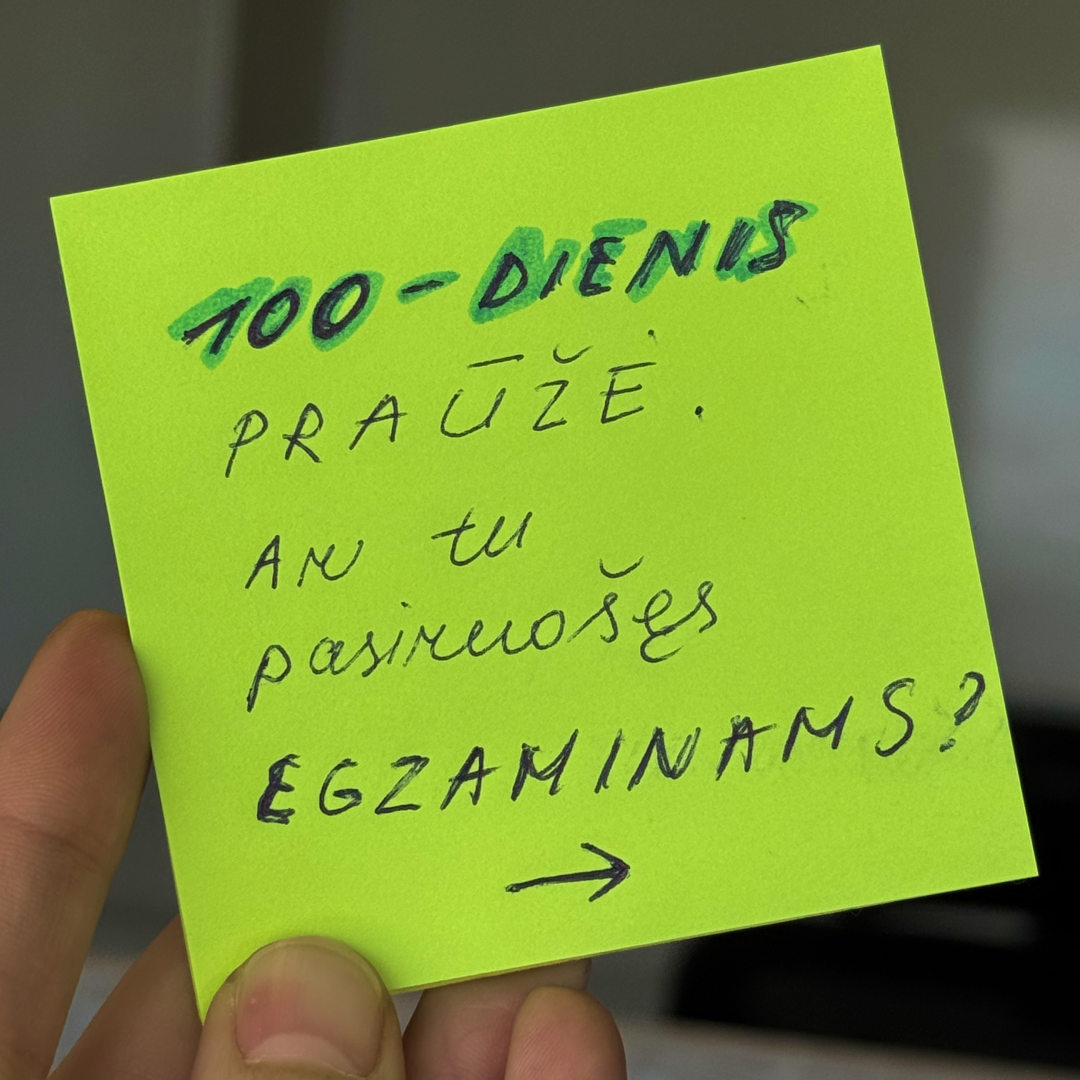 100-DIENIS
PRAŪŽĖ.
AR tu
pasiruošęs
EGZAMINAMS?
→